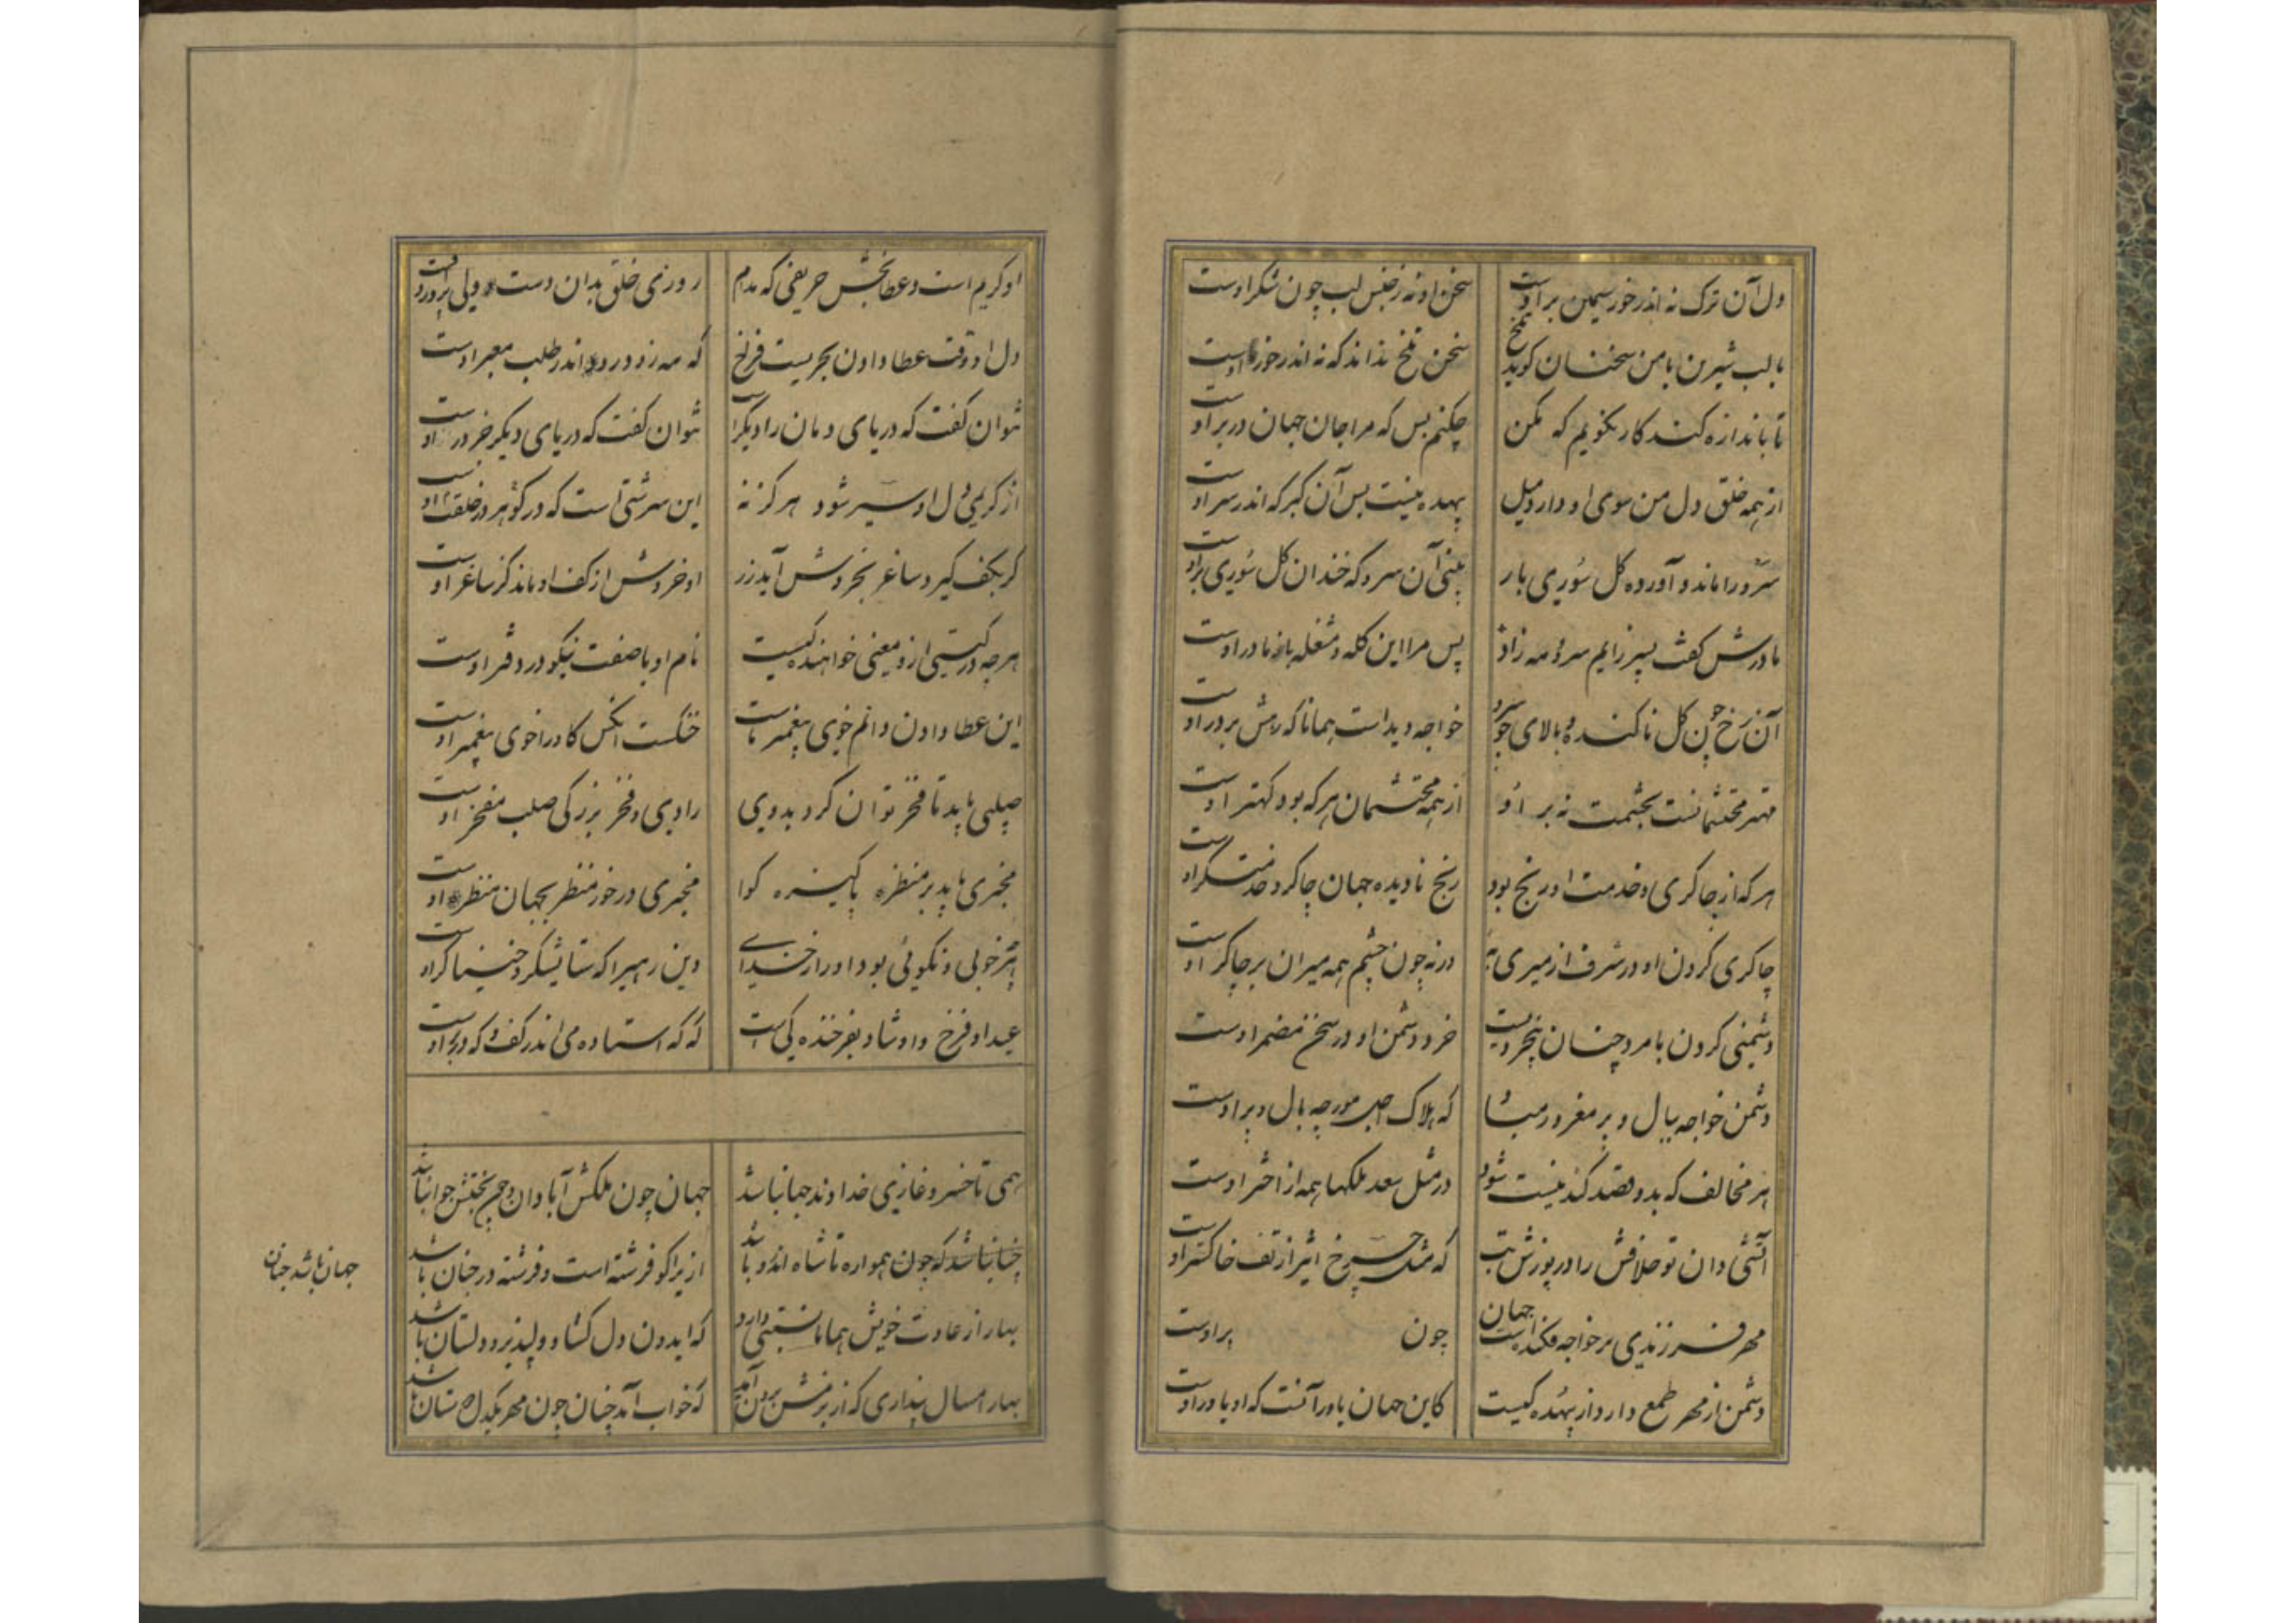 دل آن ترک نه اندر خور سیمین بر اوست
سخن او نه ز جنس لب چون شکر اوست
با لب شیرین با من سخنان کوید تلخ
سخن تلخ نداند که نه اندر خور اوست
تا باندازه کند کار نکویم که مکن
چکنم بس که مرا جان جهان در بر اوست
از همه خلق دل من سوی او دارد میل
بیهده نیست پس آن کبر که اندر سر اوست
سرو را ماند و آورده کل سوری بار
بینی آن سرو که خندان کل سوری بر اوست
مادرش کفت پسر زایم سرو و مه زاد
پس مرا این کله و مشغله با مادر اوست
آن رخ چون کل ناکنده و بالای چو سرو
خواجه دیدست همانا که رهش بر در اوست
مهتر محتشمانست بحشمت نه بر او
از همه محتشمان هر که بود کهتر اوست
هر که از چاکری و خدمت او رنج بود
رنج نادیده جهان چاکر و خدمتکر اوست
چاکری کردن او در شرف از میری به
ورنه چون چشم همه میران بر چاکر اوست
دشمنی کردن با مرد چنان بیخردیست
خرد دشمن او در سخن مضمر اوست
دشمن خواجه ببال و پر مغرور مباد
که هلاک و اجل مورچه بال و پر اوست
هر مخالف که بدو قصد کند نیست شود
در مثل سعد فلکها همه از اختر اوست
آتشی دان تو خلافش را در پوزش تب
که مثل چرخ اثیر از تف خاکستر اوست
مهر فرزندی بر خواجه فکنده است جهان
چون بر اوست
دشمن از مهر طمع دارد از بیهده کیست
کاین جهان یاور آنست که او یاور اوست
او کریم است و عطابخش حریفی که مدام
روزی خلق بدان دست ولی پرور اوست
دل او وقت عطا دادن بحریست فرخ
که مه زود رود اندر طلب معبر اوست
توان کفت که دریای دمان را دیکر است
توان کفت که دریای دیکر خر در اوست
از کریمی دل او سیر شود هرکز نه
این سرشتی است که در کوهر و در خلقت اوست
کر بکف کیرد ساغر بخروش آید زر
او خروش از کف او ماند کز ساغر اوست
هر چه در کیتی از و معنی خواهنده کیست
نام او با صفت نیکو در دفتر اوست
این عطا دادن دانم خوی پیغمبر ماست
خنکست آنکس کاو را خوی پیغمبر اوست
صلبی باید تا فخر توان کرد بدوی
رادی و فخر و بزرکی صلب مفخر اوست
مخبری باید بر منظره پاکیزه کوا
مخبری در خور منظر بجهان منظر اوست
بهتر خوبی و نکوئی بود او را ز خدای
وین رهی را که ستایشکر و خنیاکر اوست
عید او فرخ و او شاد بفرخنده یکی است
که که استاده می اندر کف و که در بر اوست
همی تا خسرو غازی خداوند جهان باشد
جهان چون ملکش آبادان و چون بختش جوان باشد
چنان باشد که چون همواره تا شاه اندرو باشد
ازیرا کو فرشته است و فرشته در جنان باشد
جهان باشد جنان
بهار از عادت خویش همانا نسبتی دارد
که ایدون دل کشا و دلپذیر و دلستان باشد
بهار امسال پنداری که از بزمش برون آید
که خواب آید چنان چون مهر یکدل دوستان باشد